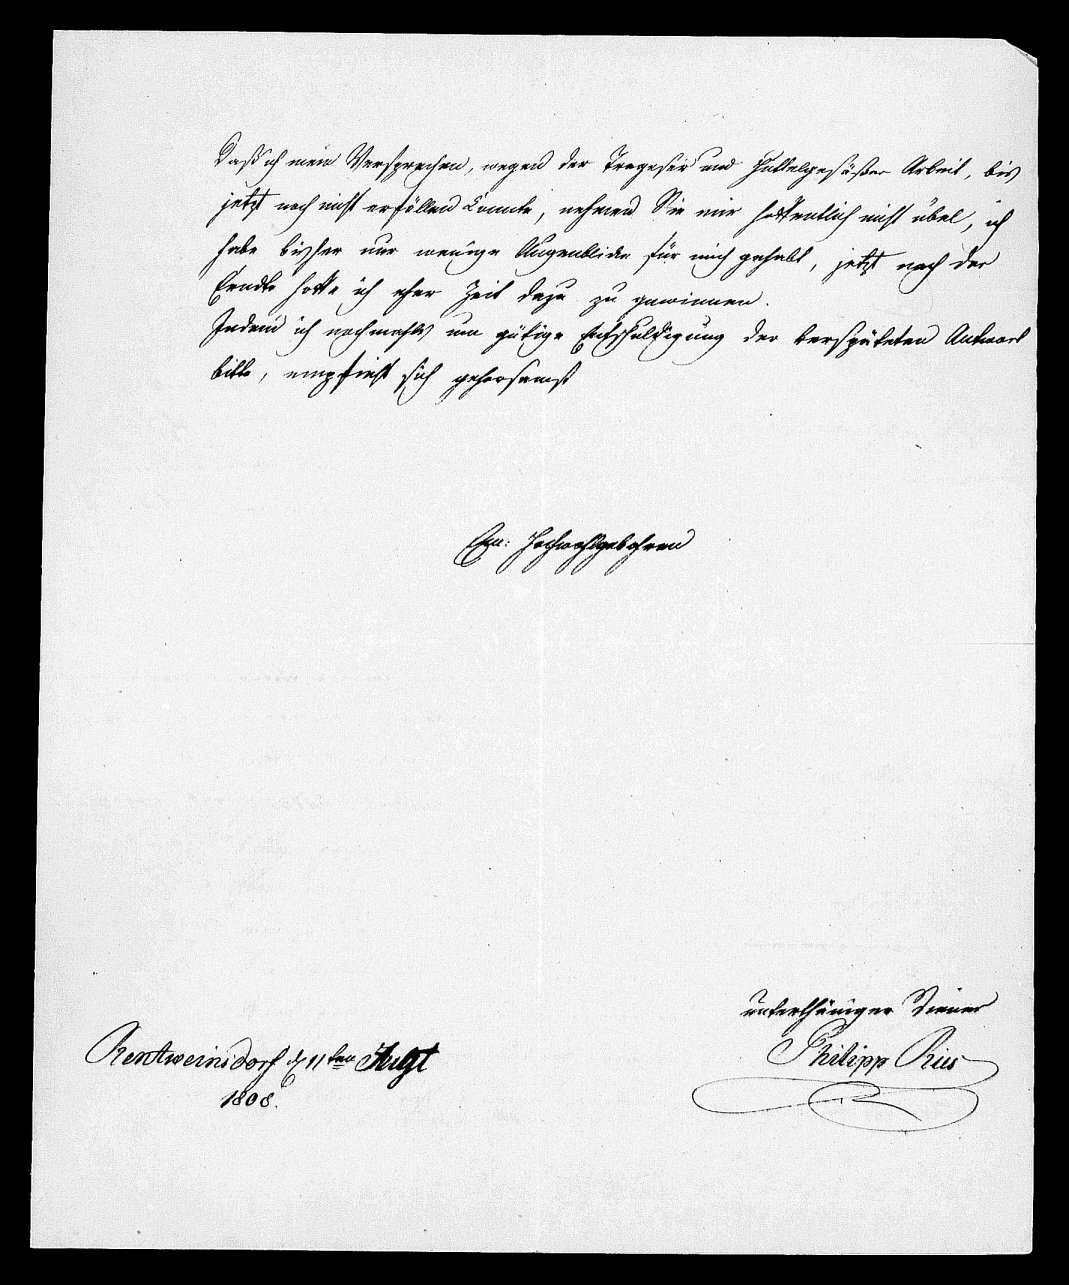 Daß ich mein Versprechen, wegen der und Arbeit, bis
jetzt noch nicht erfüllen konnte, nehmen Sie mir hoffentlich nicht übel, ich
habe bisher nur wenige Augenblicke für mich gehabt, jetzt nach der
Erndte hoffe ich eher Zeit dazu zu gewinnen.
Indem ich nochmahls um gütige Entschuldigung der verspäteten Antwort
bitte, empfiehlt sich gehorsamst
Ew: Hochwohlgebohren
unterthäniger Diener
Philipp Ries
Rentweinsdorf d 11ten Augt
1808.